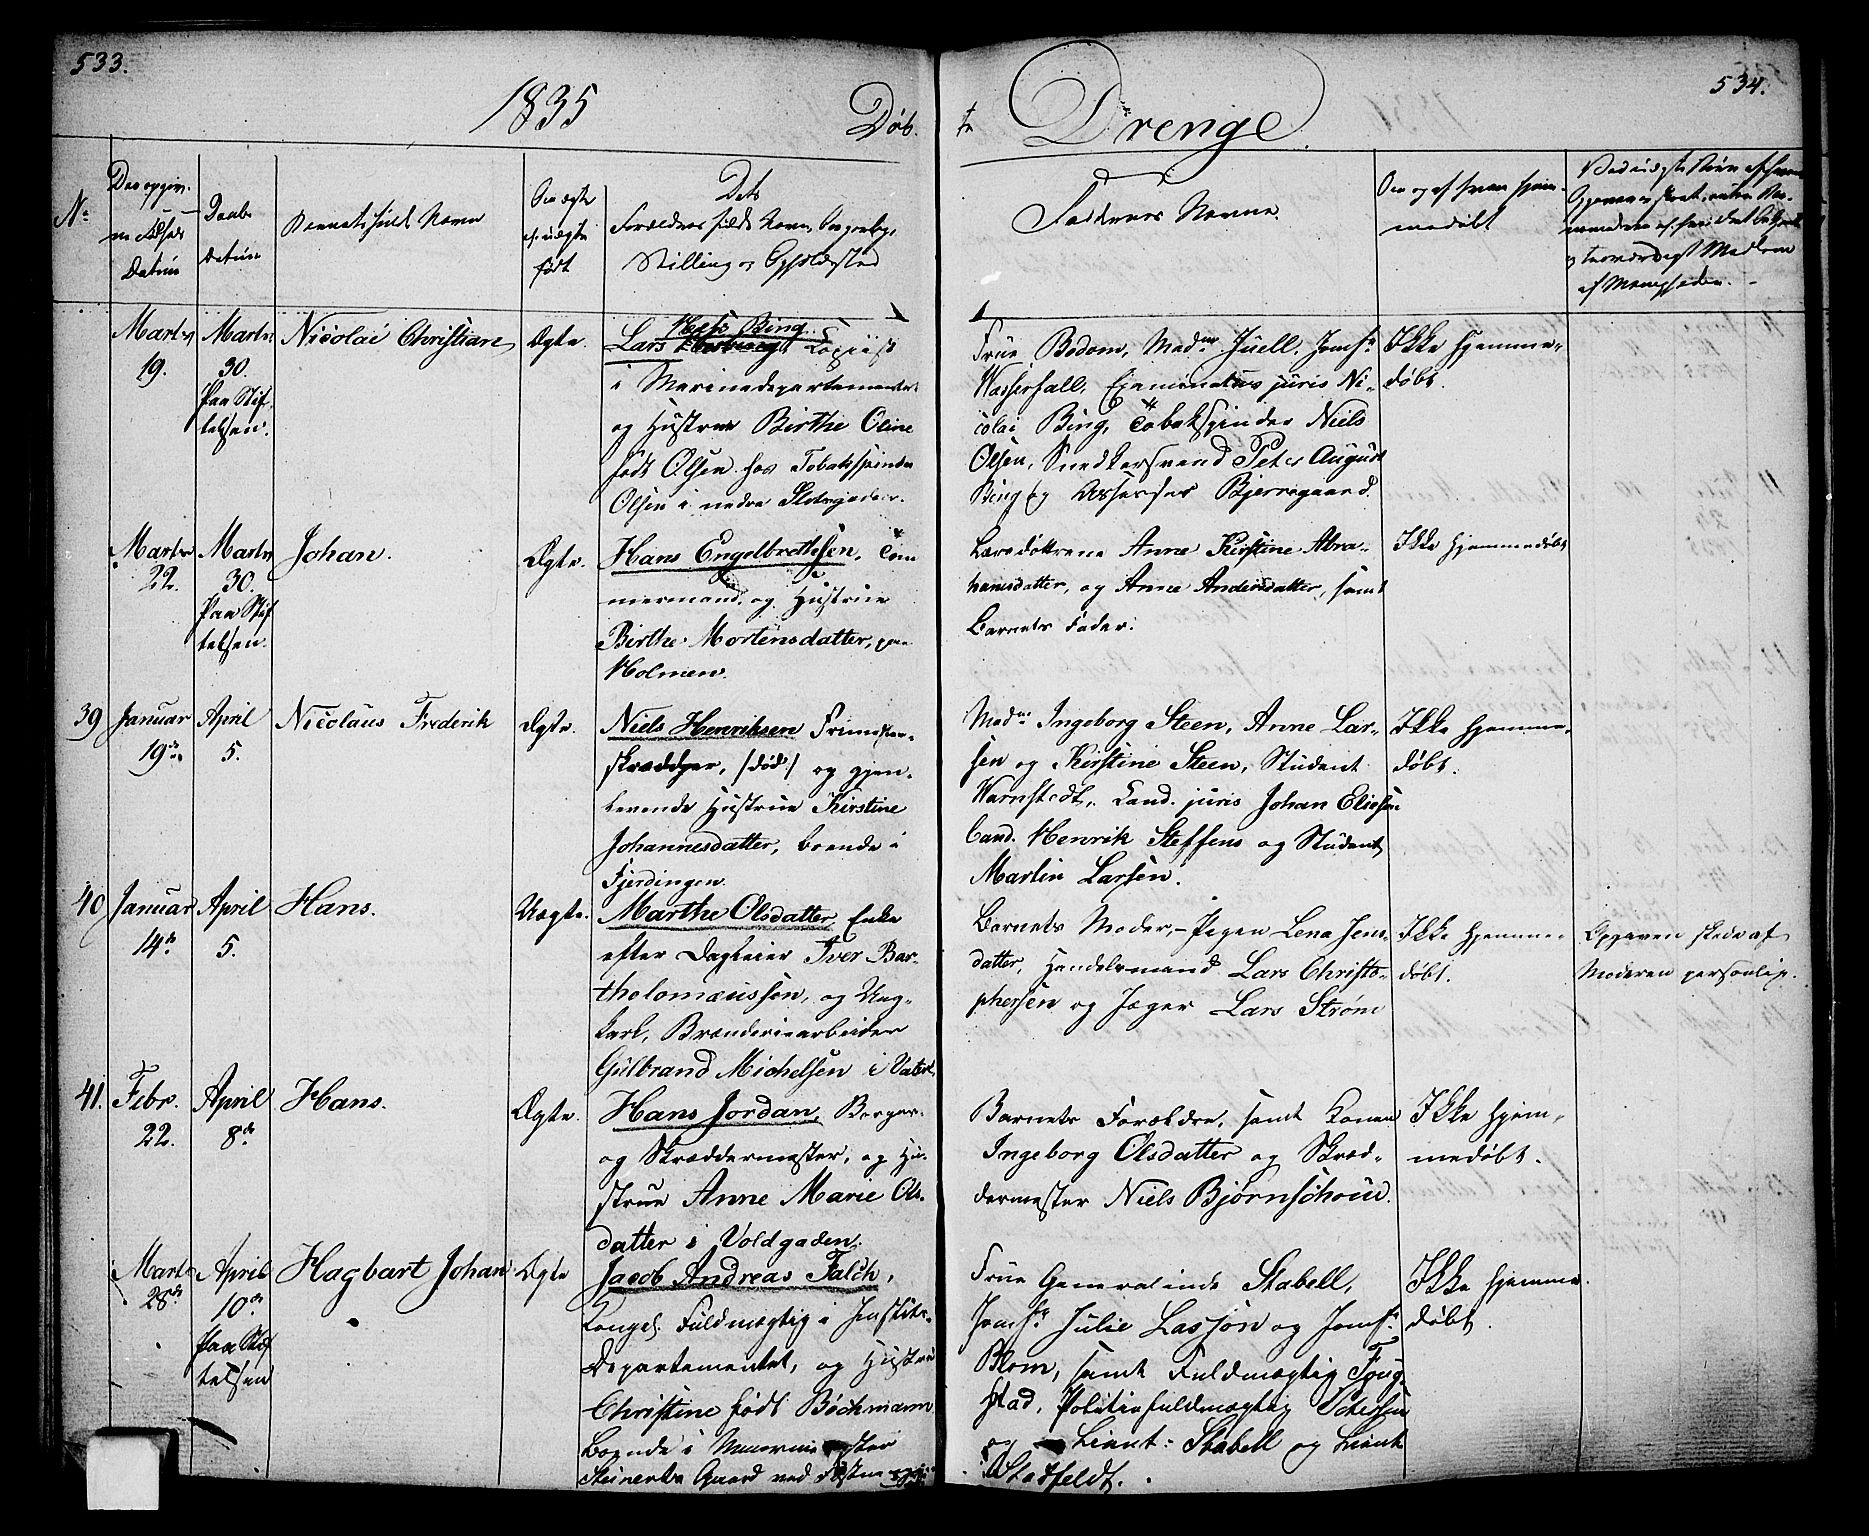 533.
1835
Døb.
te Drenge.
534.
No
Datum
Daabs
Datum
Barnets fulde Navn
Om ægte
el. uægte
født
Dets
Forældres fulde Navn, Borgerlige
Stilling og Opholdssted
Faddernes Navne.
Om og af hvem hjem-
medøbt
af Menigheden.
Marts
19.
Marts
30.
Paa Stif-
telsen.
Nicolai Christian
Ægte.
Hess Bing
Lars Copiist
i Marinedepartementet
og Hustrue Birthe Oline
født Olsen hos Tobaksspinder
Olsen i nedre Slotsgaden.
Frue Bodom, Madme Juell, Jomfr
Wasserfall, Examinatus juris Ni-
colai Bing, Tobakspinder Niels
Olsen, Snedkersvend Peter August
Bing og Assessor Bjerregaard.
Ikke hjemme-
døbt.
Marts
22.
Marts
30.
Paa Stif
telsen.
Johan.
Ægte.
Hans Engelbrethsen, Tøm
mermand, og Hustrue
Birthe Mortensdatter, paa
Holmen.
Læredøttrene Anne Kirstine Abra-
hamsdatter, og Anne Andersdatter, samt
Barnets Fader.
Ikke hjemmedøbt
39
Januar
19de
April
5.
Nicolaus Frederik
Ægte.
Niels Henriksen Frimester-
skrædder, /:død:/ og gjen-
levende Hustrue Kirstine
Johannesdatter, boende i
Fjerdingen.
Madme Ingeborg Steen, Anne Lar-
sen og Kirstine Steen, Student
Warnstedt, Cand. juris Johan Eliesen
Cand. Henrik Steffens og Student
Martin Larsen.
Ikke hjemme-
døbt.
40
Januar
14de
April
5.
Hans.
Uægte.
Marthe Olsdatter, Enke
efter Dagleier Iver Bar-
tholomæussen, og Ung-
karl, Brænderiearbeider
Gulbrand Michelsen i Vaterl.
Barnets Moder, Pigen Lena Jens-
datter, Handelsmand Lars Christo-
phersen og Jæger Lars Strøm
Ikke hjemme-
døbt.
Opgaven skede af
Moderen personlig.
41.
Febr.
22.
April
8de
Hans.
Ægte.
Hans Jordan, Borger
og Skræddermester, og Hu-
strue Anne Marie Ols-
datter i Voldgaden.
Barnets Forældre, samt Konen
Ingeborg Olsdatter og Skræd-
dermester Niels Bjørnschou.
Ikke hjem-
medøbt.
Marts
28de
April
10de
Paa Stif
telsen
Hagbart Johan
Ægte
Jacob Andreas Falch,
Kongel. Fuldmægtig i Justits-
Departementet, og Hustrue
Christine født Bøchmann
Boende i Muurmester
Steinerts Gaard ved Fæstningen
Frue Generalinde Stabell,
Jomfr Julie Lasson og Jomfr
Blom, samt Fuldmægtig Foug-
stad, Politiefuldmægtig
og Lieut: Stabell og Lieut
Stadfeldt.
Ikke hjemme-
døbt.